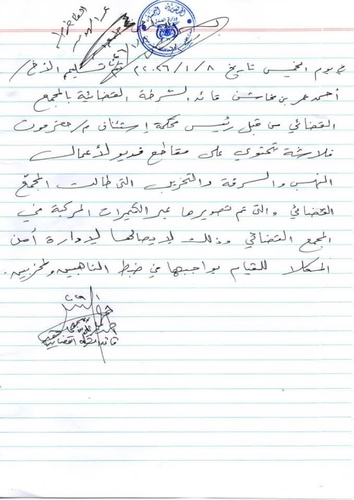 في يوم الخميس تاريخ ٢٠٢٦/١/٨ تم تسليم الأخ/
أحمد عمر بن مخاشن قائد الشرطة القضائية بالمجمع
القضائي من قبل رئيس محكمة إستئناف م/حضرموت
فلاشة تحتوي على مقاطع فديو لأعمال
النهب والسرقة والتخريب التي طالت المجمع
القضائي والتي تم تصويرها عبر الكيمرات المركبة في
المجمع القضائي وذلك لايصالها لإدارة أمن
المكلا للقيام بواجبها في ضبط الناهبين والمخربين.
قائد الشرطة القضائية